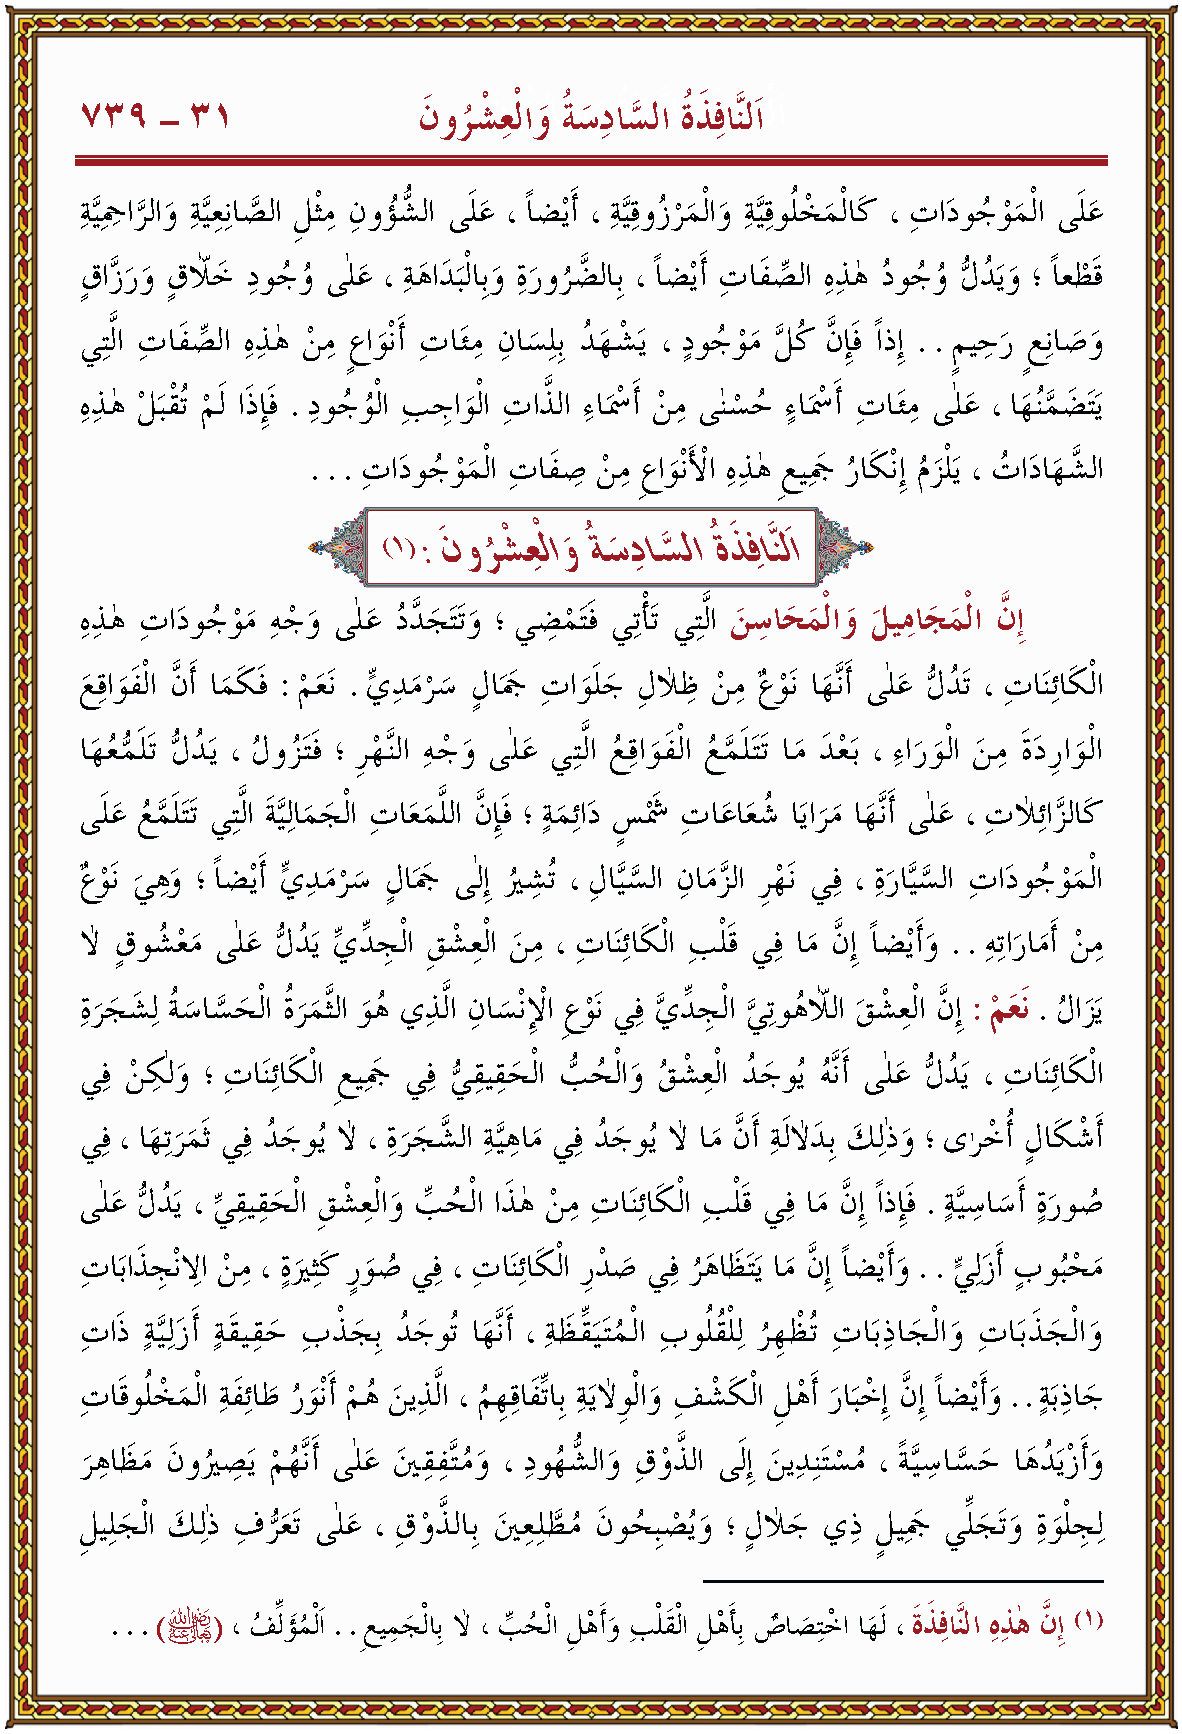 اَلنَّافِذَةُ السَّادِسَةُ وَالْعِشْرُونَ ٣١ – ٧٣٩
عَلَى الْمَوْجُودَاتِ ، كَالْمَخْلُوقِيَّةِ وَالْمَرْزُوقِيَّةِ ، أَيْضاً ، عَلَى الشُّؤُونِ مِثْلِ الصَّانِعِيَّةِ وَالرَّاحِمِيَّةِ
قَطْعاً ؛ وَيَدُلُّ وُجُودُ هٰذِهِ الصِّفَاتِ أَيْضاً ، بِالضَّرُورَةِ وَبِالْبَدَاهَةِ ، عَلٰى وُجُودِ خَلّاَقٍ وَرَزَّاقٍ
وَصَانِعٍ رَحِيمٍ . . إِذاً فَإِنَّ كُلَّ مَوْجُودٍ ، يَشْهَدُ بِلِسَانِ مِئَاتِ أَنْوَاعٍ مِنْ هٰذِهِ الصِّفَاتِ الَّتِي
يَتَضَمَّنُهَا ، عَلٰى مِئَاتِ أَسْمَاءٍ حُسْنٰى مِنْ أَسْمَاءِ الذَّاتِ الْوَاجِبِ الْوُجُودِ . فَإِذَا لَمْ تُقْبَلْ هٰذِهِ
الشَّهَادَاتُ ، يَلْزَمُ إِنْكَارُ جَمِيعِ هٰذِهِ الْأَنْوَاعِ مِنْ صِفَاتِ الْمَوْجُودَاتِ . . .
اَلنَّافِذَةُ السَّادِسَةُ وَالْعِشْرُونَ : (١)
إِنَّ الْمَجَامِيلَ وَالْمَحَاسِنَ الَّتِي تَأْتِي فَتَمْضِي ؛ وَتَتَجَدَّدُ عَلٰى وَجْهِ مَوْجُودَاتِ هٰذِهِ
الْكَائِنَاتِ ، تَدُلُّ عَلٰى أَنَّهَا نَوْعٌ مِنْ ظِلاٰلِ جَلَوَاتِ جَمَالٍ سَرْمَدِيٍّ . نَعَمْ : فَكَمَا أَنَّ الْفَوَاقِعَ
الْوَارِدَةَ مِنَ الْوَرَاءِ ، بَعْدَ مَا تَتَلَمَّعُ الْفَوَاقِعُ الَّتِي عَلٰى وَجْهِ النَّهْرِ ؛ فَتَزُولُ ، يَدُلُّ تَلَمُّعُهَا
كَالزَّائِلاٰتِ ، عَلٰى أَنَّهَا مَرَايَا شُعَاعَاتِ شَمْسٍ دَائِمَةٍ ؛ فَإِنَّ اللَّمَعَاتِ الْجَمَالِيَّةَ الَّتِي تَتَلَمَّعُ عَلَى
الْمَوْجُودَاتِ السَّيَّارَةِ ، فِي نَهْرِ الزَّمَانِ السَّيَّالِ ، تُشِيرُ إِلٰى جَمَالٍ سَرْمَدِيٍّ أَيْضاً ؛ وَهِيَ نَوْعٌ
مِنْ أَمَارَاتِهِ . . وَأَيْضاً إِنَّ مَا فِي قَلْبِ الْكَائِنَاتِ ، مِنَ الْعِشْقِ الْجِدِّيِّ يَدُلُّ عَلٰى مَعْشُوقٍ لاٰ
يَزَالُ . نَعَمْ : إِنَّ الْعِشْقَ اللّاَهُوتِيَّ الْجِدِّيَّ فِي نَوْعِ الْإِنْسَانِ الَّذِي هُوَ الثَّمَرَةُ الْحَسَّاسَةُ لِشَجَرَةِ
الْكَائِنَاتِ ، يَدُلُّ عَلٰى أَنَّهُ يُوجَدُ الْعِشْقُ وَالْحُبُّ الْحَقِيقِيُّ فِي جَمِيعِ الْكَائِنَاتِ ؛ وَلٰكِنْ فِي
أَشْكَالٍ أُخْرٰى ؛ وَذٰلِكَ بِدَلاٰلَةِ أَنَّ مَا لاٰ يُوجَدُ فِي مَاهِيَّةِ الشَّجَرَةِ ، لاٰ يُوجَدُ فِي ثَمَرَتِهَا ، فِي
صُورَةٍ أَسَاسِيَّةٍ . فَإِذاً إِنَّ مَا فِي قَلْبِ الْكَائِنَاتِ مِنْ هٰذَا الْحُبِّ وَالْعِشْقِ الْحَقِيقِيِّ ، يَدُلُّ عَلٰى
مَحْبُوبٍ أَزَلِيٍّ . . وَأَيْضاً إِنَّ مَا يَتَظَاهَرُ فِي صَدْرِ الْكَائِنَاتِ ، فِي صُوَرٍ كَثِيرَةٍ ، مِنْ الِانْجِذَابَاتِ
وَالْجَذَبَاتِ وَالْجَاذِبَاتِ تُظْهِرُ لِلْقُلُوبِ الْمُتَيَقِّظَةِ ، أَنَّهَا تُوجَدُ بِجَذْبِ حَقِيقَةٍ أَزَلِيَّةٍ ذَاتِ
جَاذِبَةٍ . . وَأَيْضاً إِنَّ إِخْبَارَ أَهْلِ الْكَشْفِ وَالْوِلاٰيَةِ بِاتِّفَاقِهِمُ ، الَّذِينَ هُمْ أَنْوَرُ طَائِفَةِ الْمَخْلُوقَاتِ
وَأَزْيَدُهَا حَسَّاسِيَّةً ، مُسْتَنِدِينَ إِلَى الذَّوْقِ وَالشُّهُودِ ، وَمُتَّفِقِينَ عَلٰى أَنَّهُمْ يَصِيرُونَ مَظَاهِرَ
لِجِلْوَةِ وَتَجَلِّي جَمِيلٍ ذِي جَلاٰلٍ ؛ وَيُصْبِحُونَ مُطَّلِعِينَ بِالذَّوْقِ ، عَلٰى تَعَرُّفِ ذٰلِكَ الْجَلِيلِ
(١) إِنَّ هٰذِهِ النَّافِذَةَ ، لَهَا اخْتِصَاصٌ بِأَهْلِ الْقَلْبِ وَأَهْلِ الْحُبِّ ، لاٰ بِالْجَمِيعِ . . اَلْمُؤَلِّفُ ، (رَضِيَ اللّٰهُ تَعَالٰى عَنْهُ) . . .